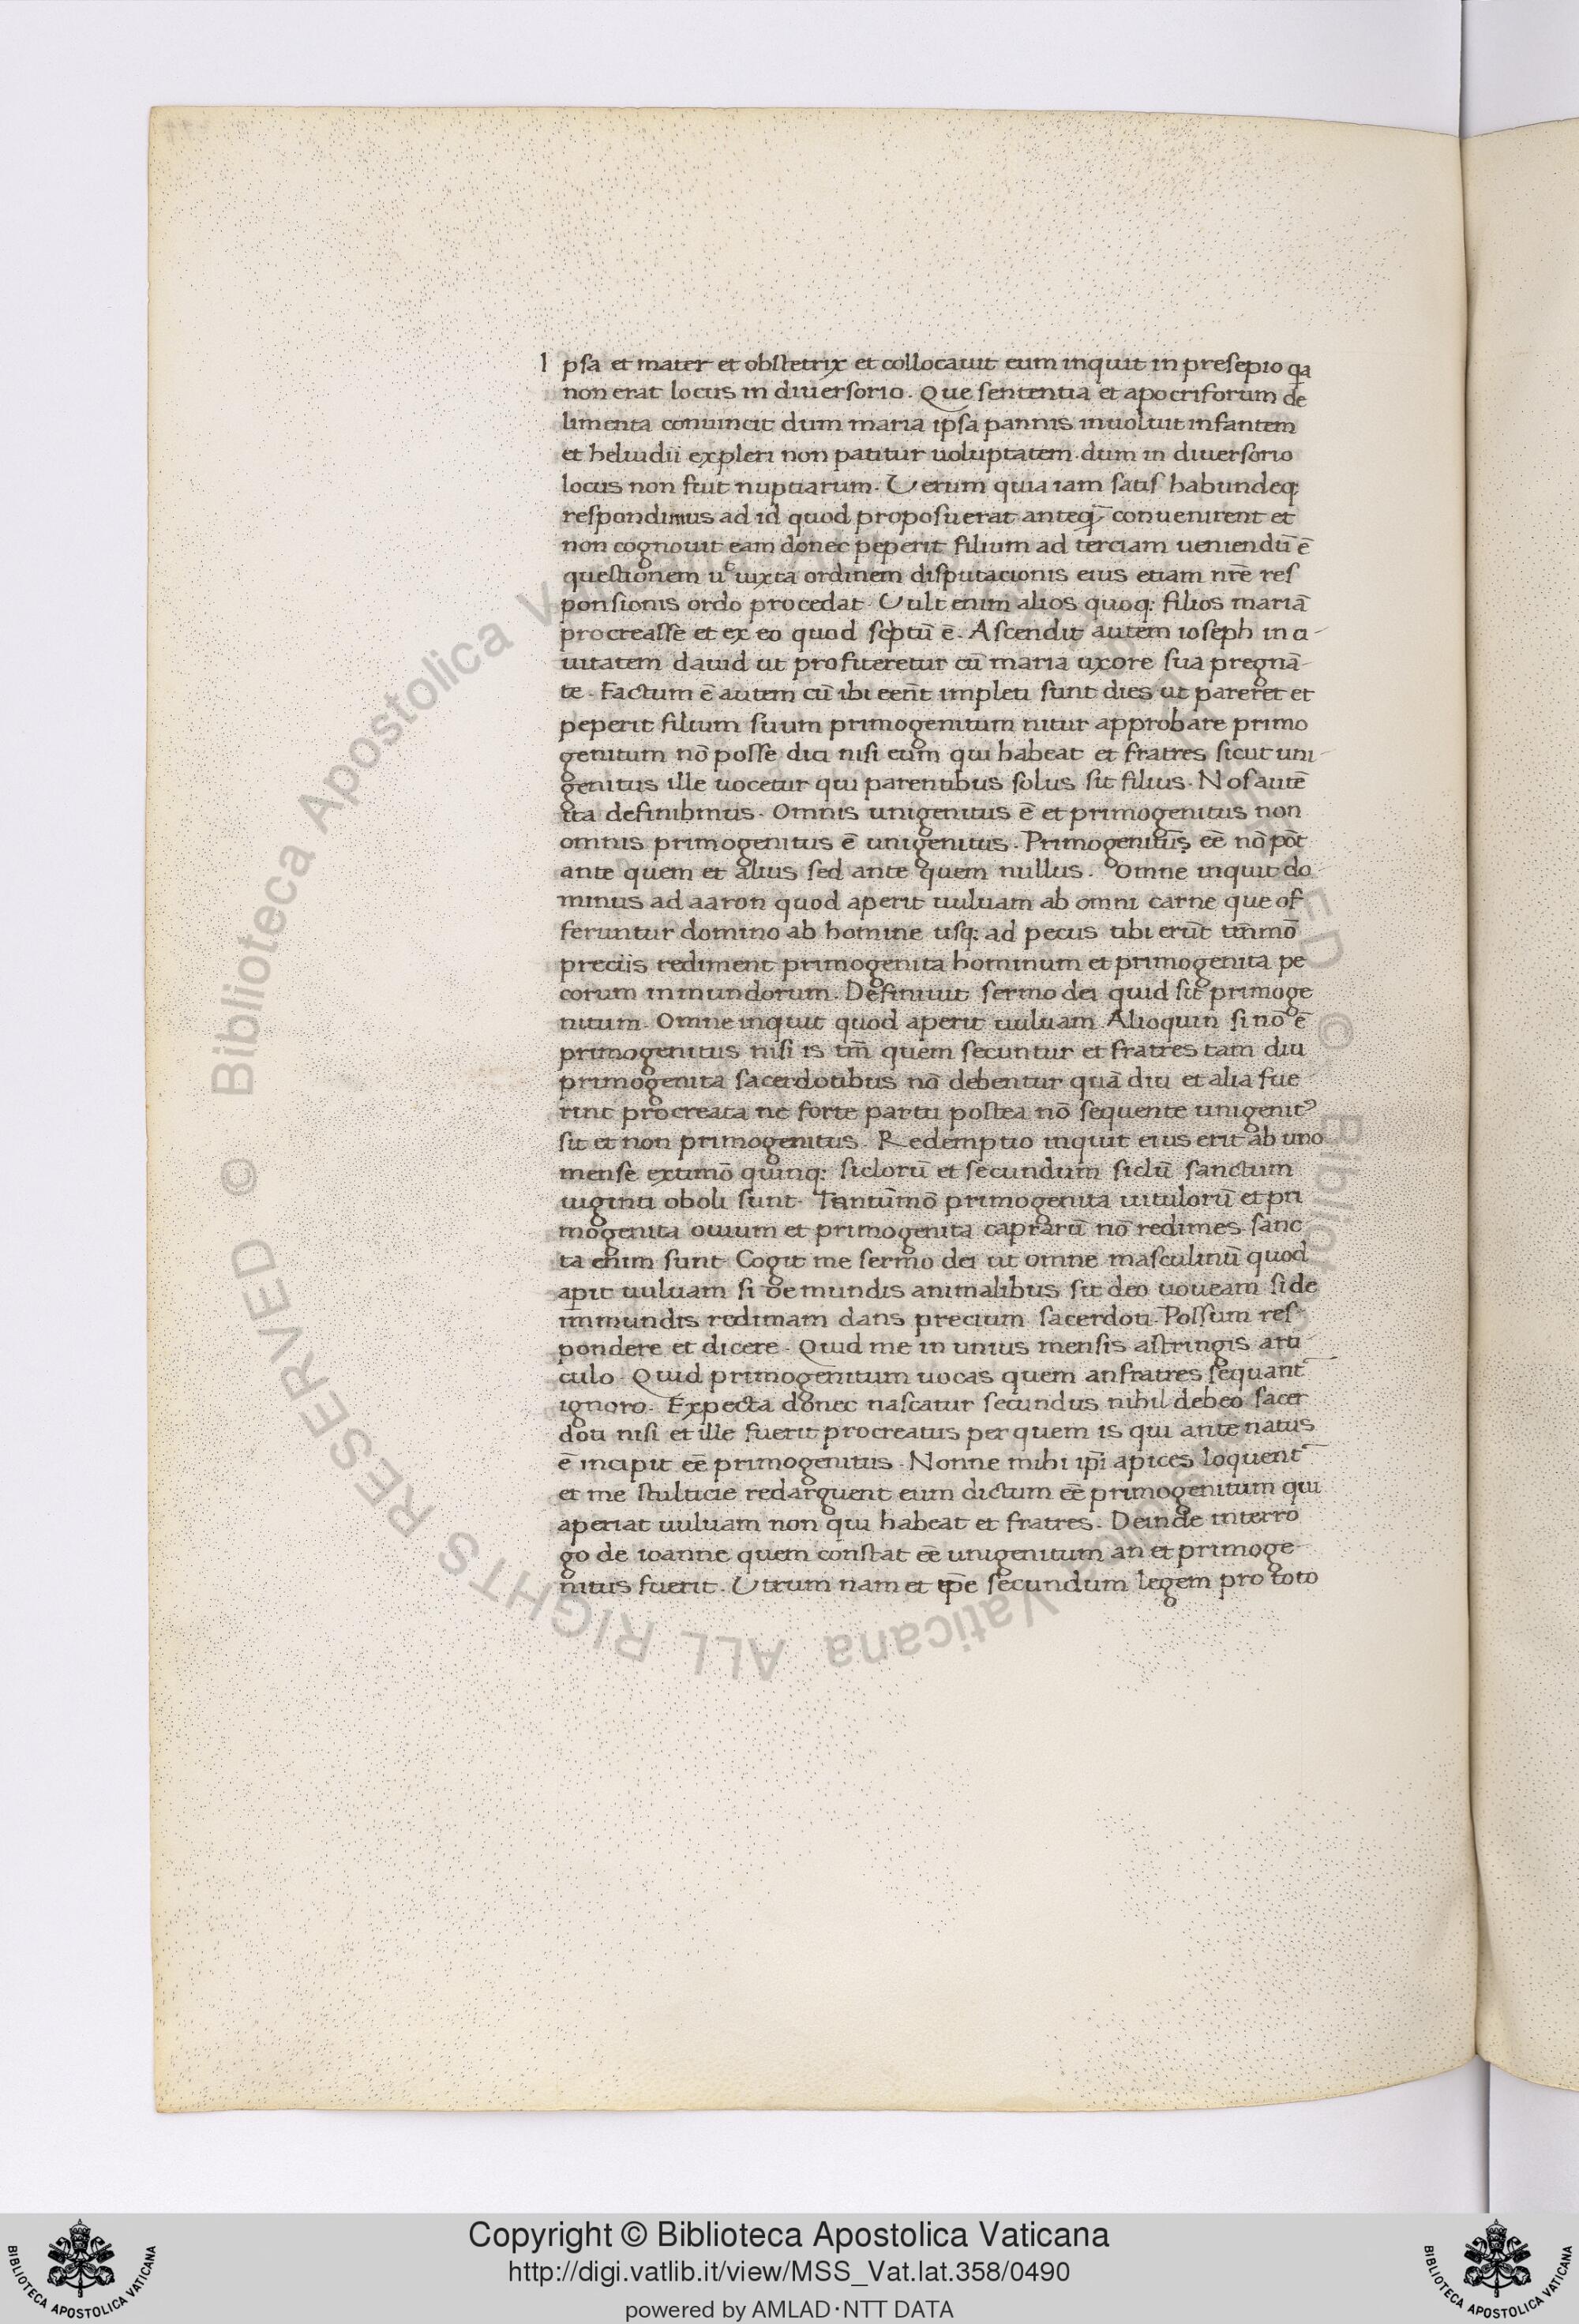 Ipsa et mater et obstetrix et collocauit eum inquit in presepio qa
non erat locus in diuersorio. Que sententia et apocriforum de
limenta conuincit dum maria ipsa pannis inuoluit infantem
et heluidii expleri non patitur uoluptatem dum in diuersorio
locus non fuit nuptiarum. Uerum quia iam satis habundeq;
respondimus ad id quod proposuerat anteq̄ conuenirent et
non cognouit eam donec peperit filium ad terciam ueniendū ē
questionem ut iuxta ordinem disputacionis eius etiam nr̄e res
ponsionis ordo procedat. Uult enim alios quoq; filios mariā
procreasse et ex eo quod sc̄ptū ē. Ascendit autem ioseph in ci-
uitatem dauid ut profiteretur cū maria uxore sua pregnā-
te. Factum ē autem cū ibi eēnt impleti sunt dies ut pareret et
peperit filium suum primogenitum nitur approbare primo
genitum nō posse dici nisi eum qui habeat et fratres sicut uni-
genitus ille uocetur qui parentibus solus sit filius. Nos autē
ita definibimus. Omnis unigenitus ē et primogenitus non
omnis primogenitus ē unigenitus. Primogenitus eē nō pōt
ante quem et alius sed ante quem nullus. Omne inquit do
minus ad aaron quod aperit uuluam ab omni carne que of
feruntur domino ab homine usq; ad pecus tibi erūt tm̄mō
preciis rediment primogenita hominum et primogenita pe
corum inmundorum. Definiuit sermo dei quid sit primoge
nitum. Omne inquit quod aperit uuluam. Alioquin si nō ē
primogenitus nisi is tm̄ quem secuntur et fratres tam diu
primogenita sacerdotibus nō debentur quā diu et alia fue
rint procreata ne forte partu postea nō sequente unigenit⁹
sit et non primogenitus. Redemptio inquit eius erit ab uno
mense extimō quinq; siclorū et secundum siclū sanctum
uiginti oboli sunt. Tantūmō primogenita uitulorū et pri
mogenita ouium et primogenita caprarū nō redimes sanc
ta enim sunt. Cogit me sermo dei ut omne masculinū quod
apit uuluam si de mundis animalibus sit deo uoueam si de
immundis redimam dans precium sacerdoti. Possum res-
pondere et dicere. Quid me in unius mensis astringis arti
culo. Quid primogenitum uocas quem an fratres sequant̄
ignoro. Expecta donec nascatur secundus nihil debeo sacer
doti nisi et ille fuerit procreatus per quem is qui ante natus
ē incipit eē primogenitus. Nonne mihi ip̄i apices loquent̄
et me stulticie redarguent eum dictum eē primogenitum qui
aperiat uuluam non qui habeat et fratres. Deinde interro
go de ioanne quem constat eē unigenitum an et primoge-
nitus fuerit. Utrum nam et ip̄e secundum legem pro toto
Copyright © Biblioteca Apostolica Vaticana
http://digi.vatlib.it/view/MSS_Vat.lat.358/0490
powered by AMLAD·NTT DATA
BIBLIOTECA APOSTOLICA VATICANA
BIBLIOTECA APOSTOLICA VATICANA
© Biblioteca Apostolica Vaticana ALL RIGHTS RESERVED